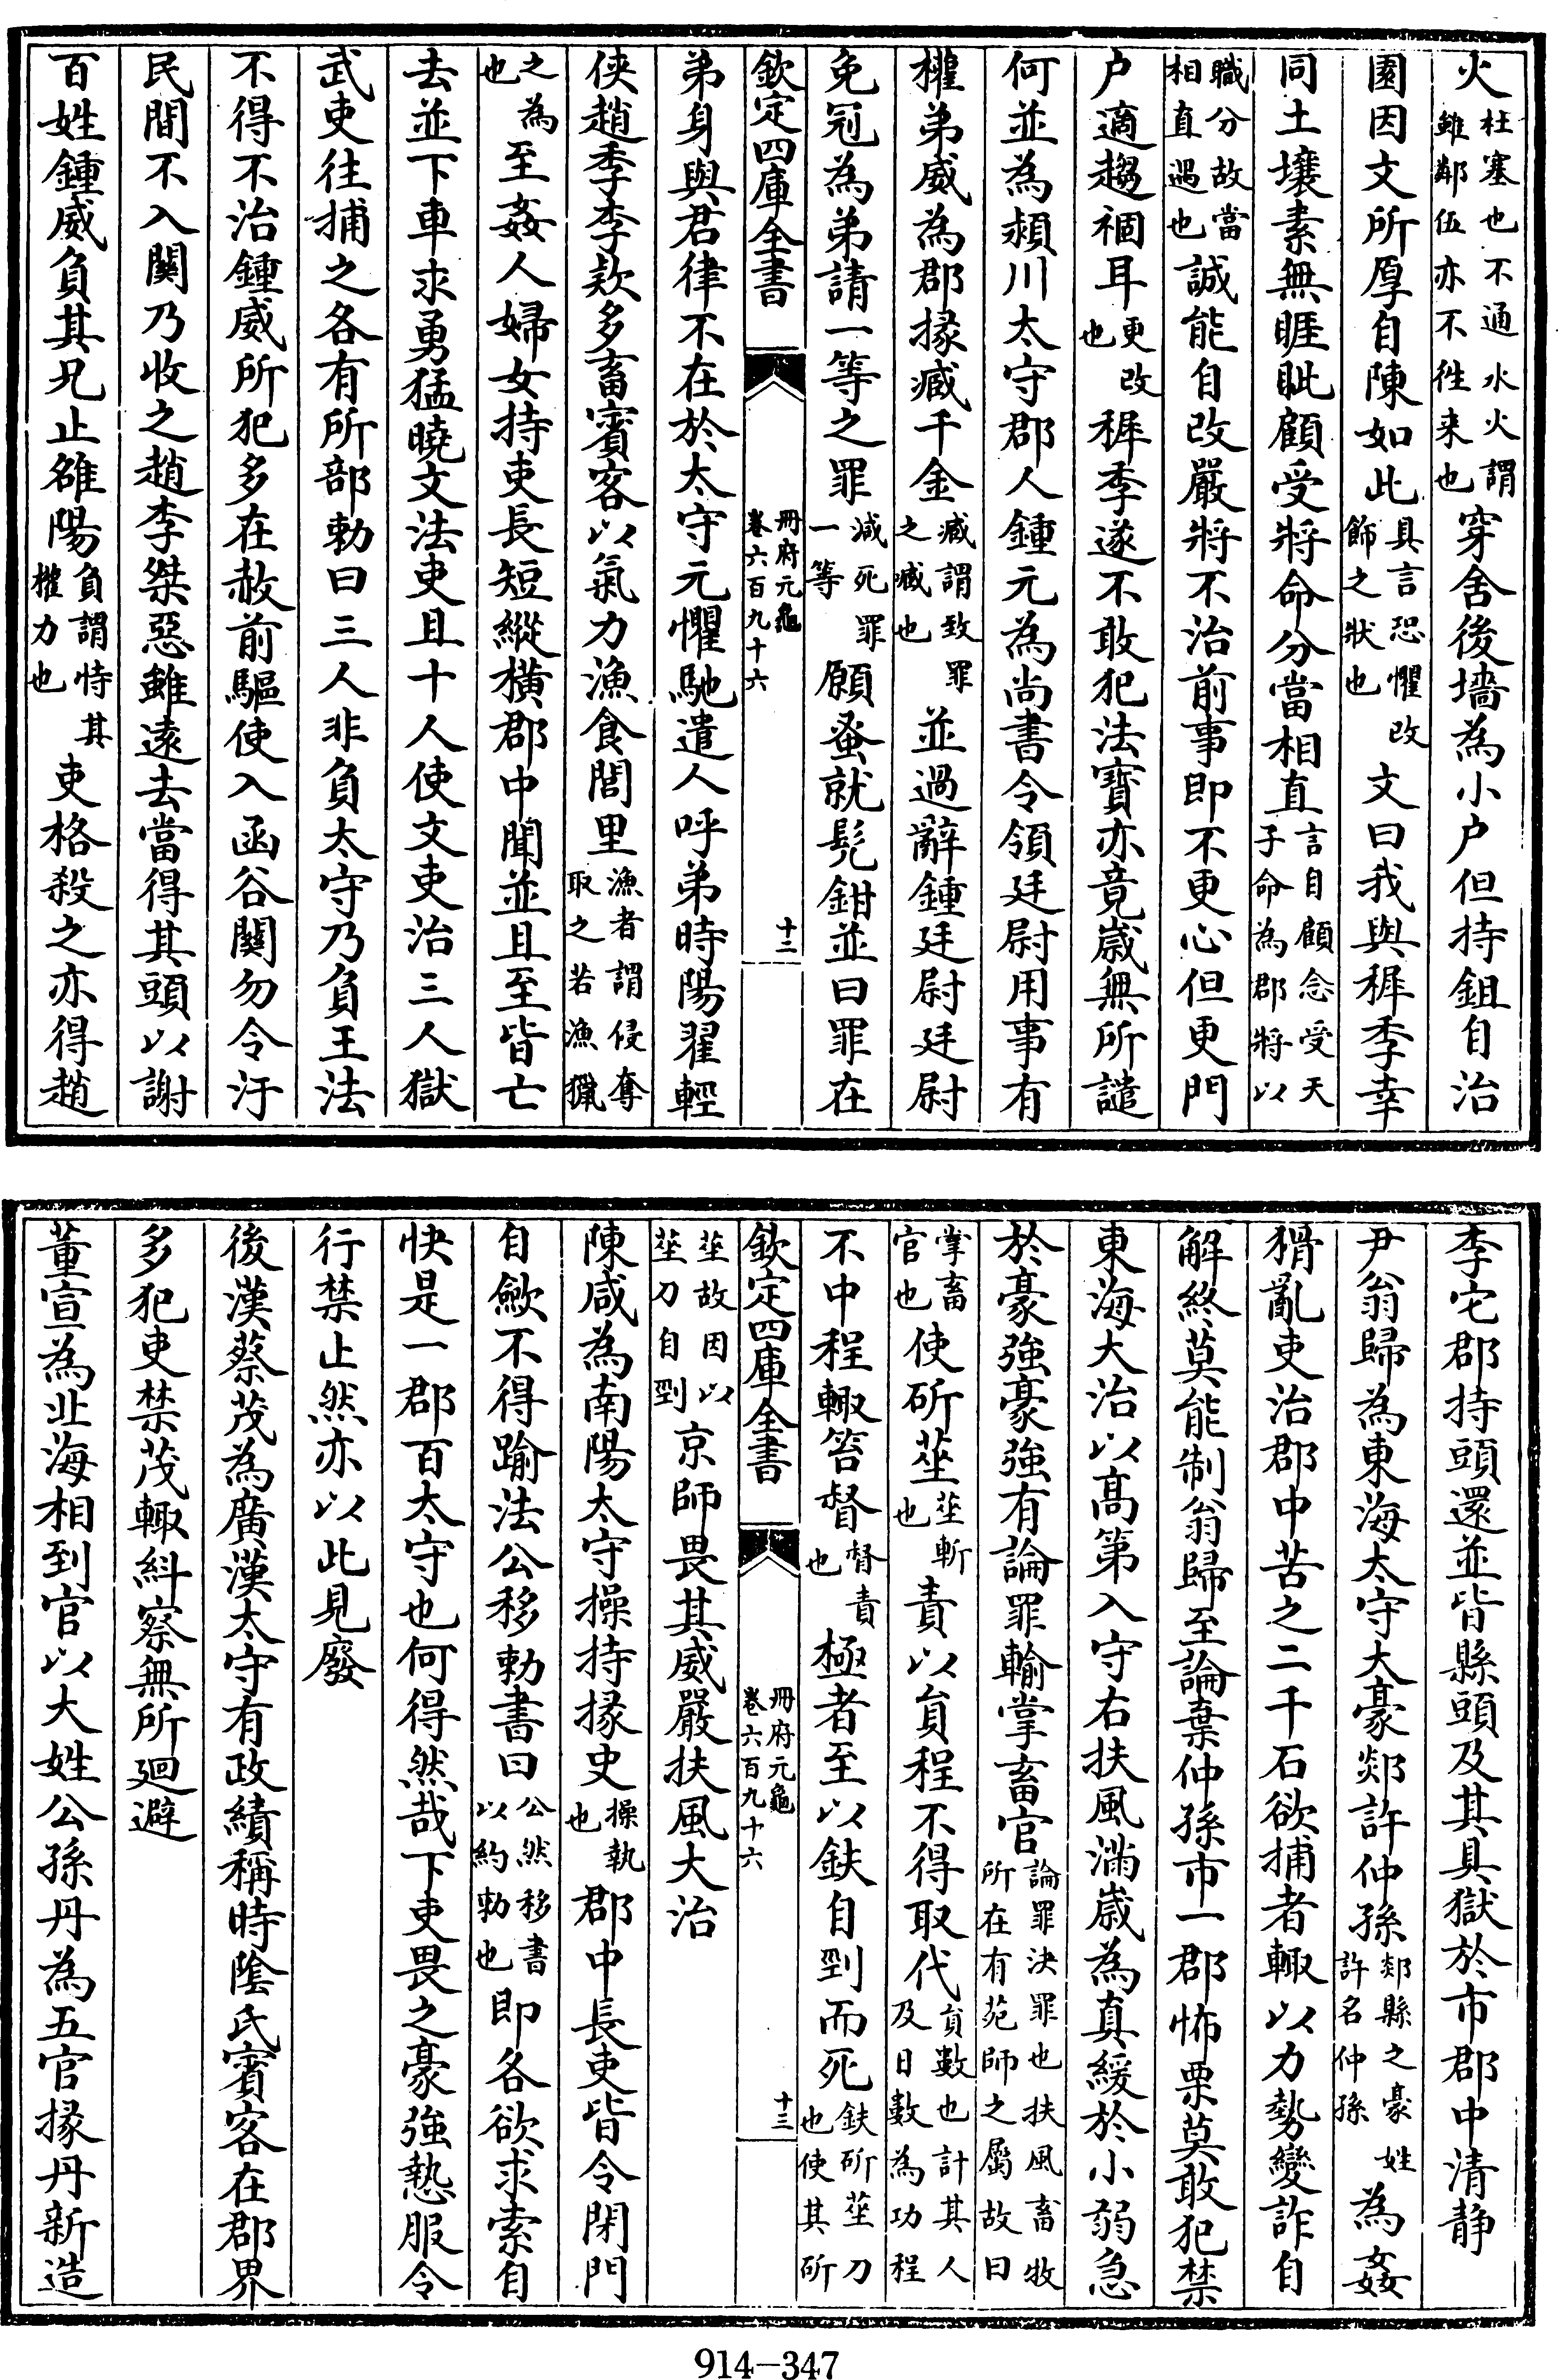 火杜塞也不通水火謂雖鄰伍亦不徃来也穿舍後墻為小户但持鉏自治
園因文所厚自陳如此具言恐懼改飾之狀也文曰我與穉季幸
同土壤素無睚眦顧受將命分當相直言自顧念受天子命為郡將以
職分故當相直遇也誠能自改嚴將不治前事即不更心但更門
户適趨禍耳更改也穉季遂不敢犯法寳亦竟歳無所譴
何並為潁川太守郡人鍾元為尚書令領廷尉用事有
權弟威為郡掾臧千金臧謂致罪之臧也並過辭鍾廷尉廷尉
免冠為弟請一等之罪減死罪一等願蚤就髠鉗並曰罪在
欽定四庫全書 冊府元龜卷六百九十六 十三
弟身與君律不在於太守元懼馳遣人呼弟時陽翟輕
侠趙季李欵多畜賓客以氣力漁食閭里漁者謂侵奪取之若漁獵
之為也至姦人婦女持吏長短縱橫郡中聞並且至皆亡
去並下車求勇猛曉文法吏且十人使文吏治三人獄
武吏往捕之各有所部勅曰三人非負太守乃負王法
不得不治鍾威所犯多在赦前驅使入函谷關勿令汙
民間不入關乃收之趙李桀惡雖逺去當得其頭以謝
百姓鍾威負其兄止雒陽負謂恃其權力也吏格殺之亦得趙
李它郡持頭還並皆縣頭及其具獄於市郡中清静
尹翁歸為東海太守大豪郯許仲孫郯縣之豪姓許名仲孫為姦
猾亂吏治郡中苦之二千石欲捕者輙以力勢變詐自
解終莫能制翁歸至論棄仲孫市一郡怖栗莫敢犯禁
東海大治以髙第入守右扶風滿歳為真緩於小弱急
於豪強豪強有論罪輸掌畜官論罪決罪也扶風畜牧所在有苑師之屬故曰
掌畜官也使斫莝莝斬也責以員程不得取代員數也計其人及日數為功程
不中程輙笞督督責也極者至以鈇自剄而死鈇斫莝刀也使其斫
欽定四庫全書 冊府元龜卷六百九十六 十三
莝故因以莝刀自剄京師畏其威嚴扶風大治
陳咸為南陽太守操持掾史操執也郡中長吏皆令閉門
自斂不得踰法公移勅書曰公然移書以約勅也即各欲求索自
快是一郡百太守也何得然哉下吏畏之豪強慹服令
行禁止然亦以此見廢
後漢蔡茂為廣漢太守有政績稱時隂氏賓客在郡界
多犯吏禁茂輙糾察無所廻避
董宣為北海相到官以大姓公孫丹為五官掾丹新造
914-347